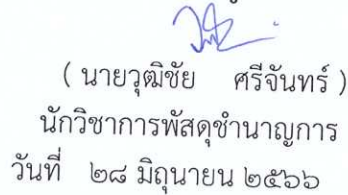 ( นายวุฒิชัย ศรีจันทร์ )
นักวิชาการพัสดุชำนาญการ
วันที่ ๒๘ มิถุนายน ๒๕๖๖